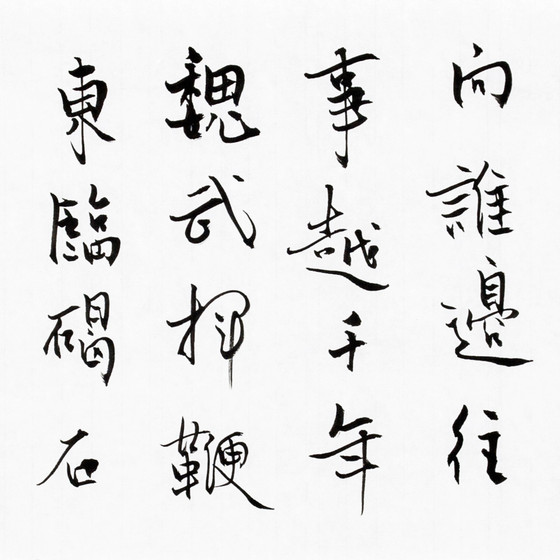 向誰邊往
事越千年
魏武揮鞭
東臨碣石